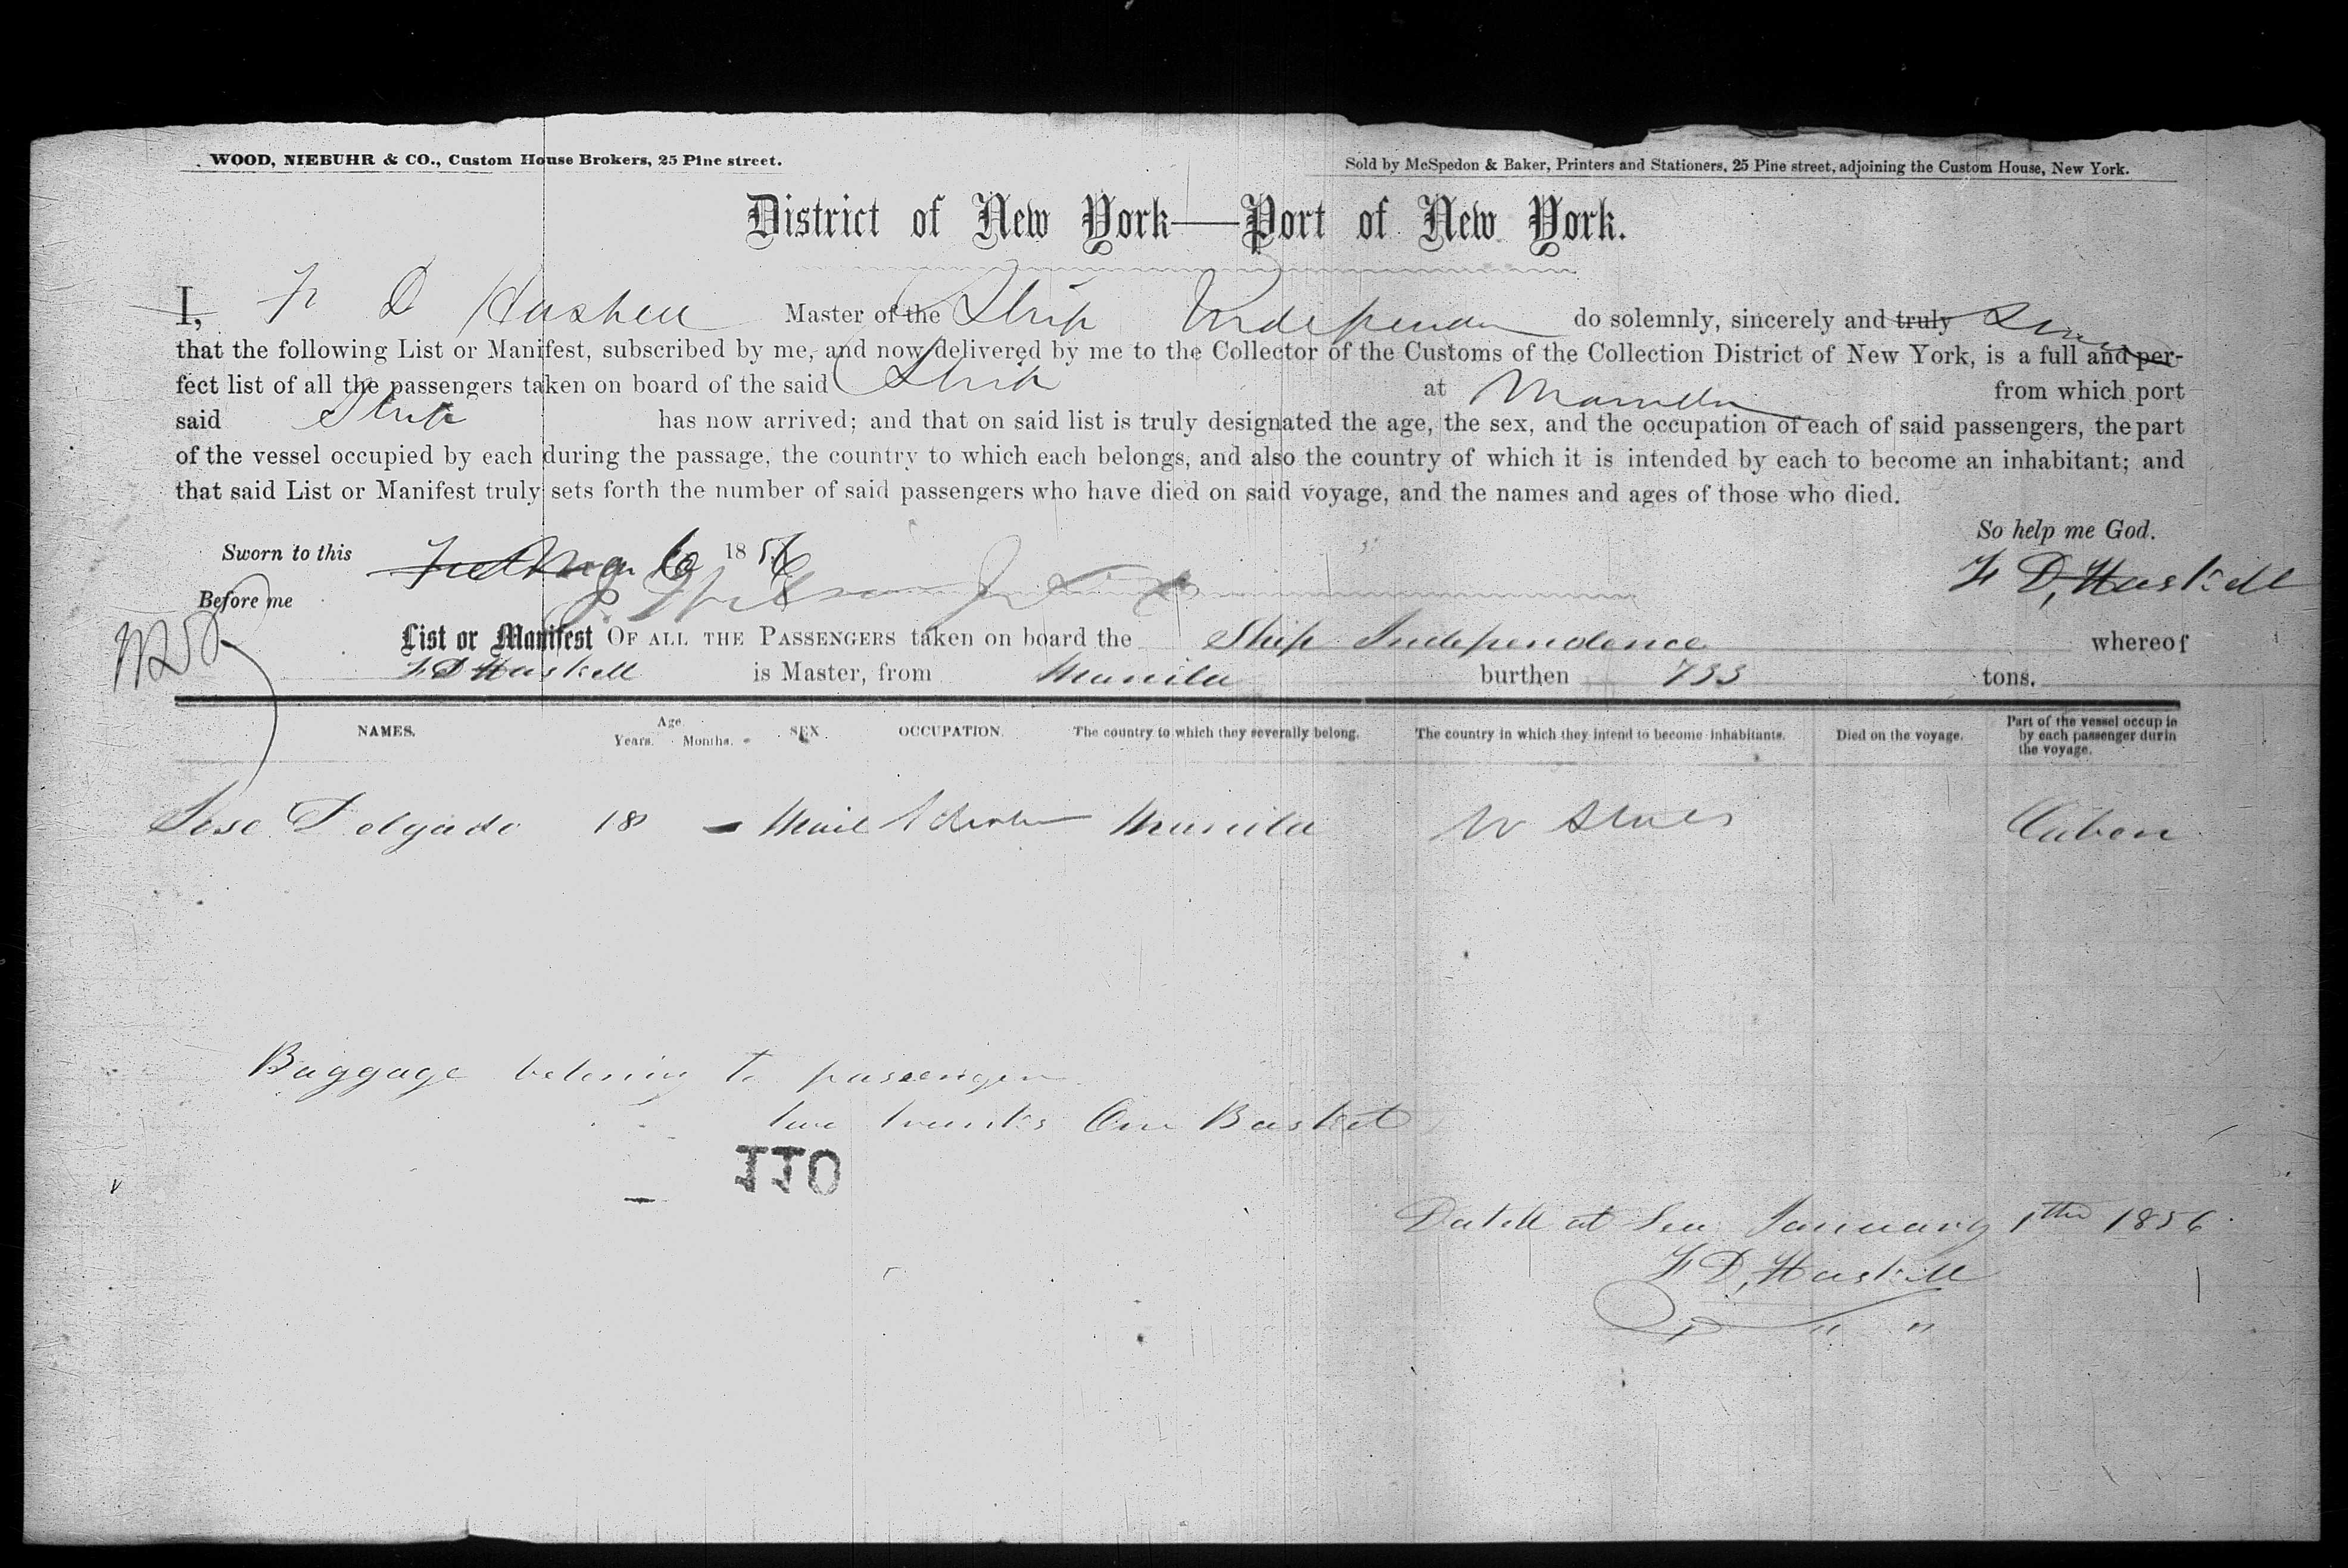 WOOD, NIEBUHR & CO., Custom House Brokers, 25 Pine street.
Sold by McSpedon & Baker, Printers and Stationers, 25 Pine street, adjoining the Custom House, New York.
District of New York—Port of New York.
I, F D Haskell Master of the Ship Independence do solemnly, sincerely and truly
that the following List or Manifest, subscribed by me, and now delivered by me to the Collector of the Customs of the Collection District of New York, is a full and per-
fect list of all the passengers taken on board of the said Ship at Manila from which port
said Ship has now arrived; and that on said list is truly designated the age, the sex, and the occupation of each of said passengers, the part
of the vessel occupied by each during the passage, the country to which each belongs, and also the country of which it is intended by each to become an inhabitant; and
that said List or Manifest truly sets forth the number of said passengers who have died on said voyage, and the names and ages of those who died.
So help me God.
Sworn to this 6 1856
F D, Haskell
Before me
List or Manifest OF ALL THE PASSENGERS taken on board the Ship Independence whereof
F D Haskell is Master, from Manila burthen 733 tons.
NAMES. Age. Years. Months. SEX OCCUPATION. The country to which they severally belong. The country in which they intend to become inhabitants. Died on the voyage. Part of the vessel occup in by each passenger durin the voyage.
Jose Delgado 18 - Mail Manila States Caben
Baggage to passenger
two trunks One Basket
110
Dated at Sea January 1th 1856
F D, Haskell